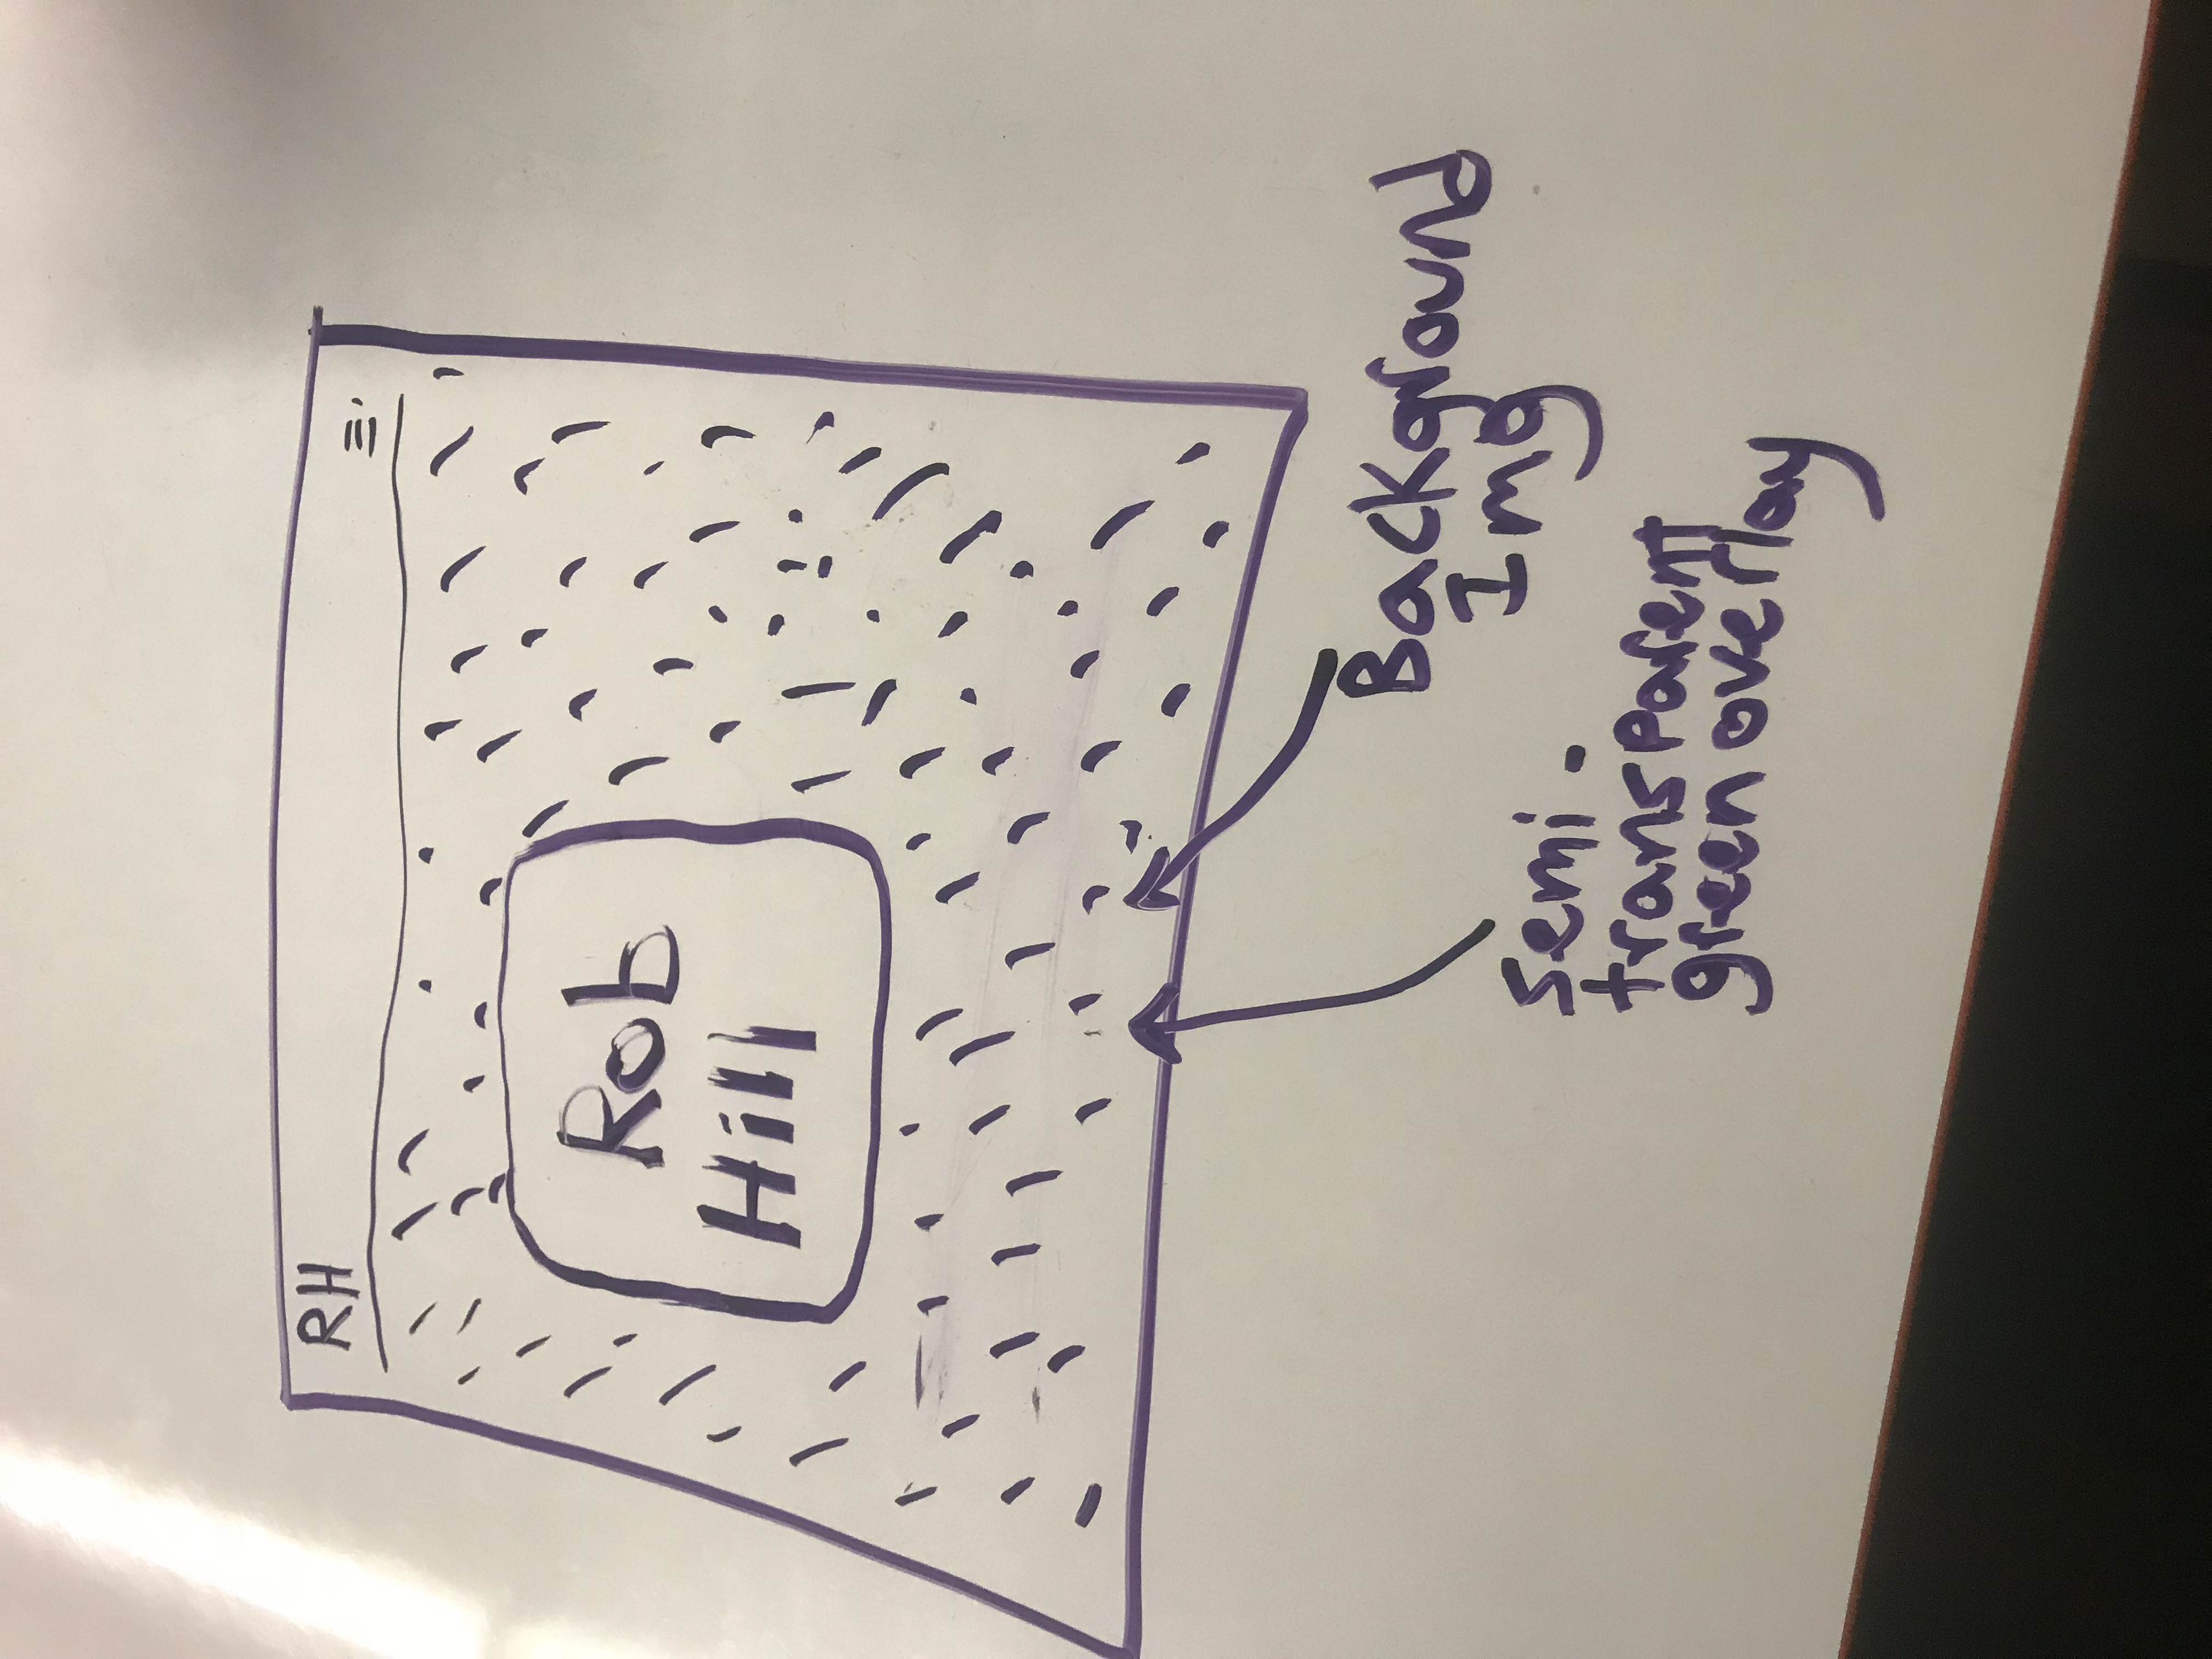 RH
Rob
Hill
Background
Img
semi-
transparent
green overlay